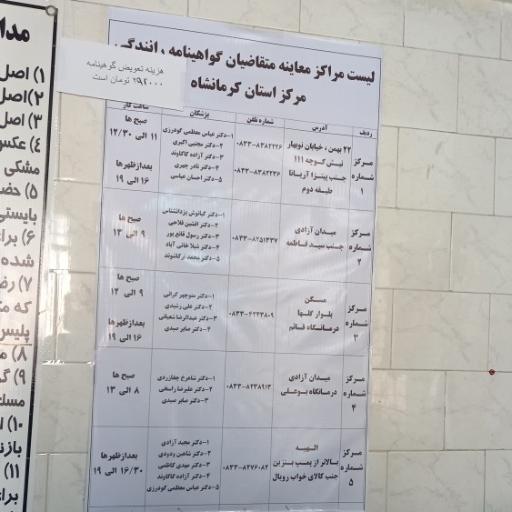 لیست مراکز معاینه متقاضیان گواهینامه رانندگی
مرکز استان کرمانشاه
هزینه تعویض گواهینامه
۲۹۲۰۰۰ تومان است
ردیف
آدرس
شماره تلفن
پزشکان
ساعت کار
مرکز شماره ۱
۲۲ بهمن ، خیابان نوبهار
نبش کوچه 111
جنب پیتزا آریانا
طبقه دوم
۱-دکتر عباس معظمی گودرزی
۲-دکتر مجتبی اکبری
۳-دکتر آزاده کاکاوند
۴-دکتر نادر چهری
۵-دکتر احسان عباسی
صبح ها
۱۱ الی ۱۲/۳۰
بعدازظهرها
۱۶ الی ۱۹
مرکز شماره ۲
میدان آزادی
جنب سید فاطمه
۰۸۳۳-۸۲۵۱۴۳۷
۲-دکتر افشین فلاحی
۳-دکتر رسول قانع پور
صبح ها
۹ الی ۱۳
مرکز شماره ۳
مسکن
بلوار گلها
درمانگاه قائم
۱-دکتر منوچهر کرانی
۲-دکتر علی رشیدی
۳-دکتر عبدالرضا شعبانی
۴-دکتر صابر صیدی
صبح ها
۹ الی ۱۲
بعدازظهرها
۱۶ الی ۱۹
مرکز شماره ۴
میدان آزادی
درمانگاه بوعلی
۰۸۳۳-۸۲۳۸۹۱۳
۲-دکتر علیرضا راسخی
۳-دکتر صابر صیدی
صبح ها
۸ الی ۱۳
مرکز شماره ۵
الهیه
بالاتر از پمپ بنزین
جنب کالای خواب رویال
۰۸۳۳-۸۲۷۶۰۸۲
۱-دکتر مجید آزادی
۲-دکتر شاهین رودی
۳-دکتر مهدی کاظمی
۴-دکتر آزاده کاکاوند
۵-دکتر عباس معظمی گودرزی
بعدازظهرها
۱۶/۳۰ الی ۱۹
مدا
۱) اصل
۲)اصل
۳) اصل
۴) عکس
مشکی
۵) حض
بایستی
۶) برای
شده
۷) رض
که م
پلیس
۸) م
۹) گ
مسک
۱۰) ا
بازن
۱۱)
برای